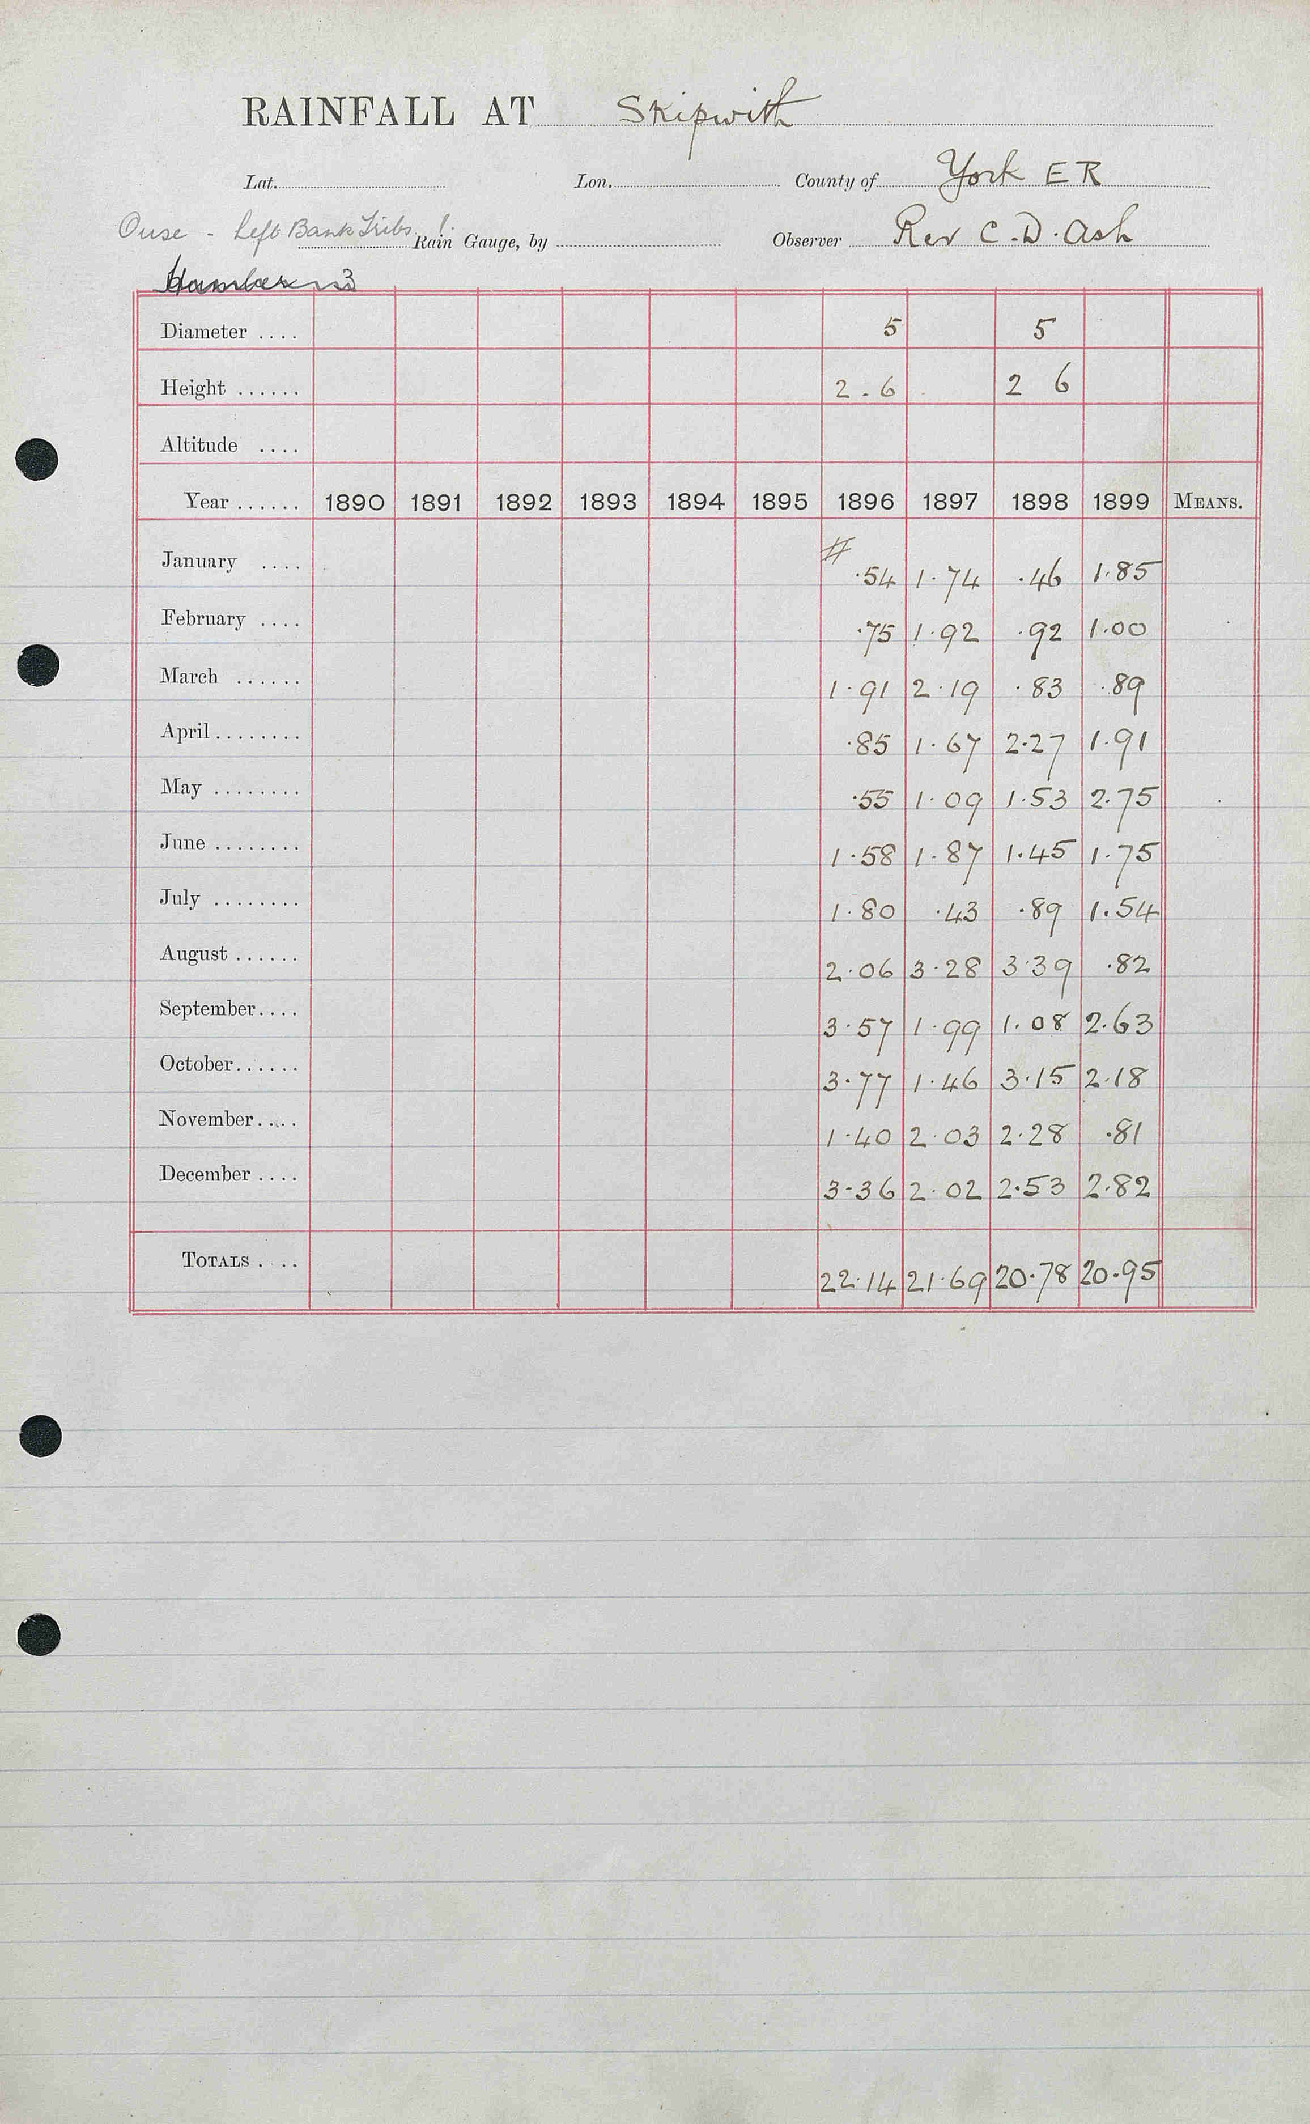 RAINFALL AT Skipwith
Lat. Lon. County of York ER
Ouse - Left Bank Tribs. Rain Gauge, by Observer Rev C. D. Ash
Humber
Diameter .... 5 5
Height ...... 2.6 2 6
Altitude ....
Year ...... 1890 1891 1892 1893 1894 1895 1896 1897 1898 1899 MEANS.
#
January .... .54 1.74 .46 1.85
February .... .75 1.92 .92 1.00
March ...... 1.91 2.19 .83 .89
April ........ .85 1.67 2.27 1.91
May ........ .55 1.09 1.53 2.75
June ........ 1.58 1.87 1.45 1.75
July ........ 1.80 .43 .89 1.54
August ...... 2.06 3.28 3.39 .82
September.... 3.57 1.99 1.08 2.63
October...... 3.77 1.46 3.15 2.18
November.... 1.40 2.03 2.28 .81
December .... 3.36 2.02 2.53 2.82
TOTALS .... 22.14 21.69 20.78 20.95